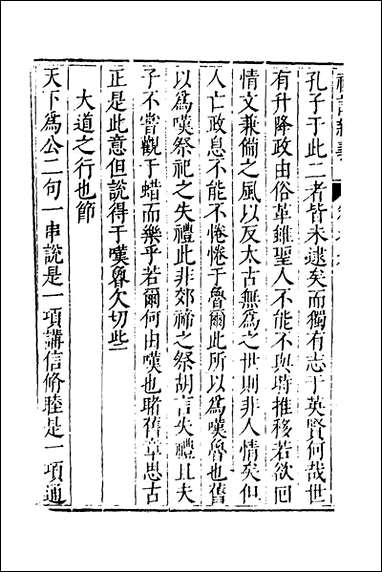 孔子于此二者皆未逮矣而獨有志于英賢何哉世
有升降政由俗革雖聖人不能不與時推移若欲囘
情文兼備之風以反太古無爲之世則非人情矣但
人亡政息不能不惓惓于魯爾此所以爲嘆魯也舊
以爲嘆祭祀之失禮此非郊禘之祭胡言失禮且夫
子不嘗觀于蜡而樂乎若爾何由嘆也睹舊章思古
正是此意但說得于嘆魯欠切些
大道之行也節
天下爲公二句一串說是一項講信脩睦是一項通